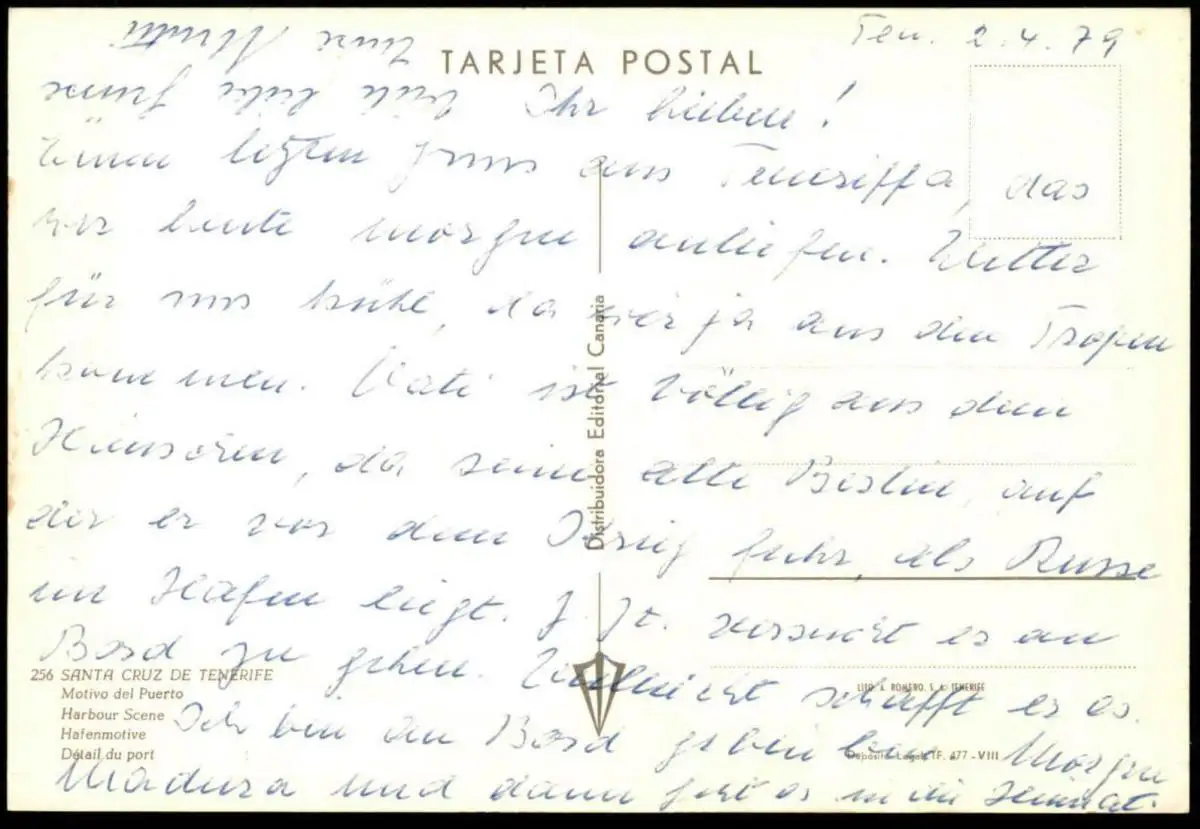 TARJETA POSTAL
Ten. 2.4.79
Ihr lieben!
Einen letzten Gruss aus Teneriffa, das
wir heute morgen anliefen. Wetter
für uns kühl, da wir ja aus den Tropen
kommen. Vati ist völlig aus dem
Häuschen, da seine alte Berlin, auf
der er vor dem Krieg fuhr, als Russe
im Hafen liegt. Z. Zt. versucht er an
Bord zu gehen. Vielleicht schafft er es.
Ich bin an Bord geblieben. Morgen
Madeira und dann geht es in die Heimat.
Viele liebe Grüsse
Eure Mutti
Distribuidora Editorial Canaria
256 SANTA CRUZ DE TENERIFE
Motivo del Puerto
Harbour Scene
Hafenmotive
Détail du port
LITO. A. ROMERO, S. A. TENERIFE
Depósito Legal TF. 477 - VIII